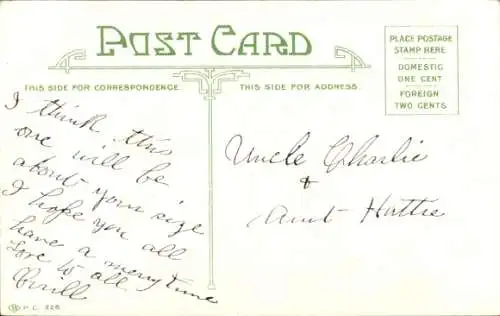 POST CARD
THIS SIDE FOR CORRESPONDENCE.
THIS SIDE FOR ADDRESS.
PLACE POSTAGE
STAMP HERE
DOMESTIC
ONE CENT
FOREIGN
TWO CENTS
I think this
one will be
about your size
I hope you all
have a merry time
Love to all
Uncle Charlie
&
Aunt Hattie
P.C. 226